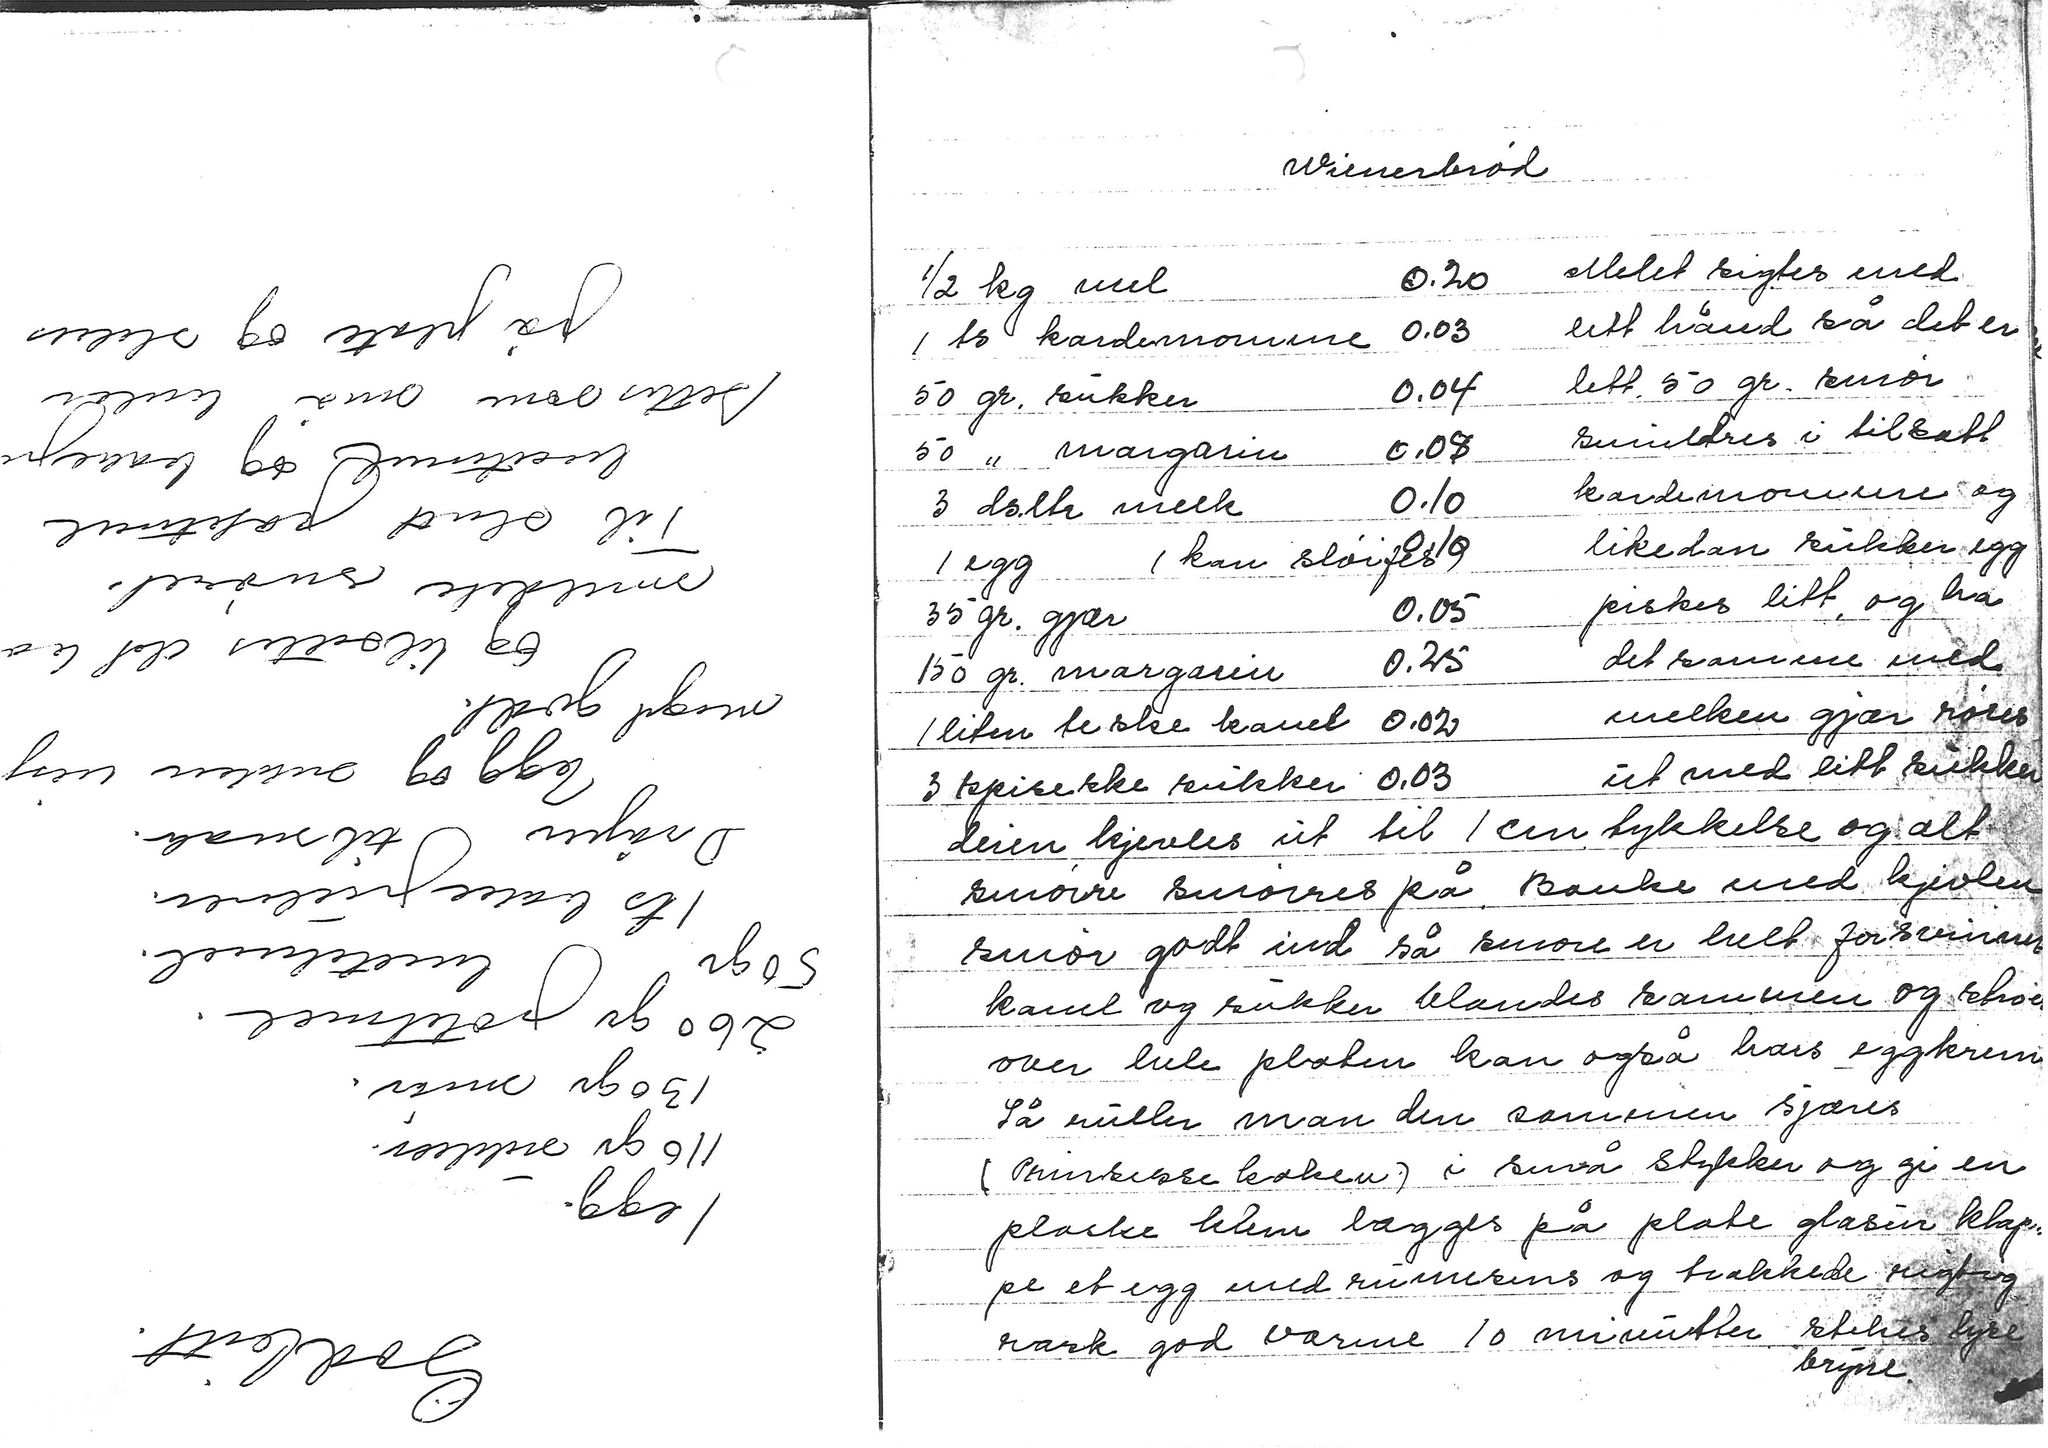 Wienerbrød
1/2 kg mel 0.20 Melet sigtes med
1 ts kardemomme 0.03 lett hånd så det er
50 gr. sukker 0.04 lett. 50 gr. smør
50 " margarin 0.08 smuldres i tilsatt
3 dsltr melk 0.10 kardemomme og
1 egg ( kan sløifes 0.10 likedan sukker egg
35 gr. gjær 0.05 piskes litt, og ha
150 gr. margarin 0.25 det samme med
1 liten teske kanel 0.02 melken gjær røres
3 spiseske sukker 0.03 ut med litt sukker
deien kjevles ut til 1 cm tykkelse og alt
smørre smørres på. Banke med kjevlen
smør godt ind så smøre er helt forsvinner
kanel og sukker blandes sammen og
over hele platen kan også haes eggkrem
Så ruller man den sammen sjæres
(Prinsesse kaken) i små stykker og gi en
klem lægges på plate glasur klap-
pe et egg med og
rask god varme 10 minutter stekes lyse
bryne.
Godbitt.
1 egg.
110 gr sukker.
130 gr smør.
260 gr potetmel.
50 gr hvetemel.
1 ts bakepulver.
Dråper til smak.
Egg og sukker
meget godt.
og tilsettes det
smeltete smøret.
Til slutt potetmel
hvetemel og
Settes som små kuler
på plate og stekes